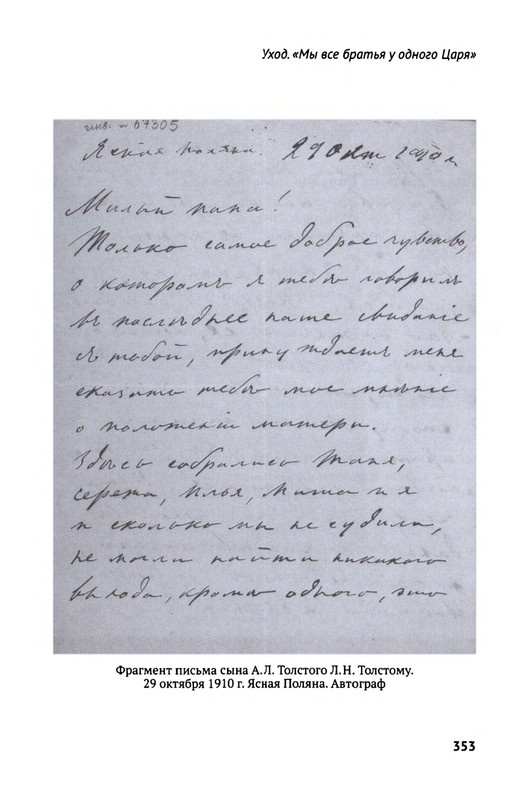 Уход. «Мы все братья у одного Царя»
инв. № 67305
Ясная Поляна. 29 Окт 1910 г.
Милый папа!
Только самое доброе чувство,
о которомъ я тебѣ говорилъ
въ послѣднее наше свиданіе
съ тобой, принуждаетъ меня
сказать тебѣ мое мнѣніе
о положеніи матери.
Здѣсь собрались Таня,
Сережа, Илья, Миша и я
и сколько мы не судили,
не могли найти никакого
выхода, кромѣ одного, это
Фрагмент письма сына А.Л. Толстого Л.Н. Толстому.
29 октября 1910 г. Ясная Поляна. Автограф
353